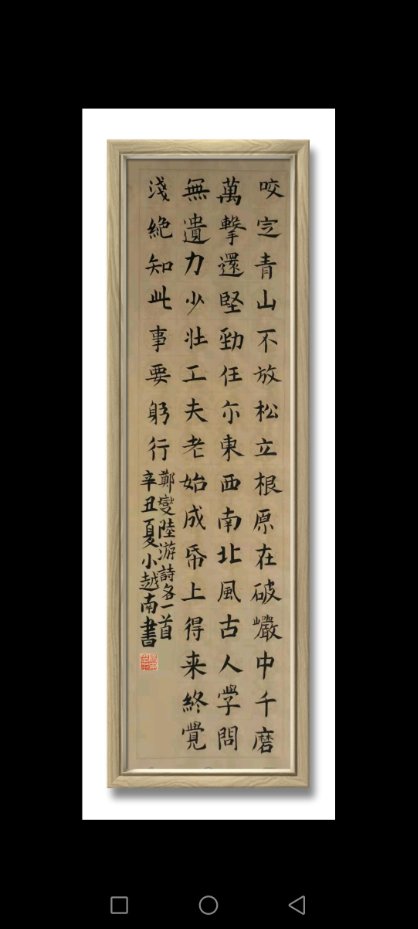 咬定青山不放松立根原在破巖中千磨
萬擊還堅勁任尔東西南北風古人學問
無遺力少壯工夫老始成帋上得来終覺
淺絕知此事要躬行
鄭燮陸游詩各一首
辛丑夏小越南書